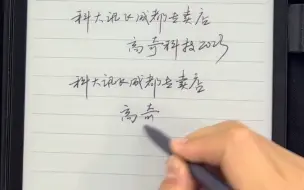 科大讯飞成都专卖店
高奇科技2023
科大讯飞成都专卖店
高奇